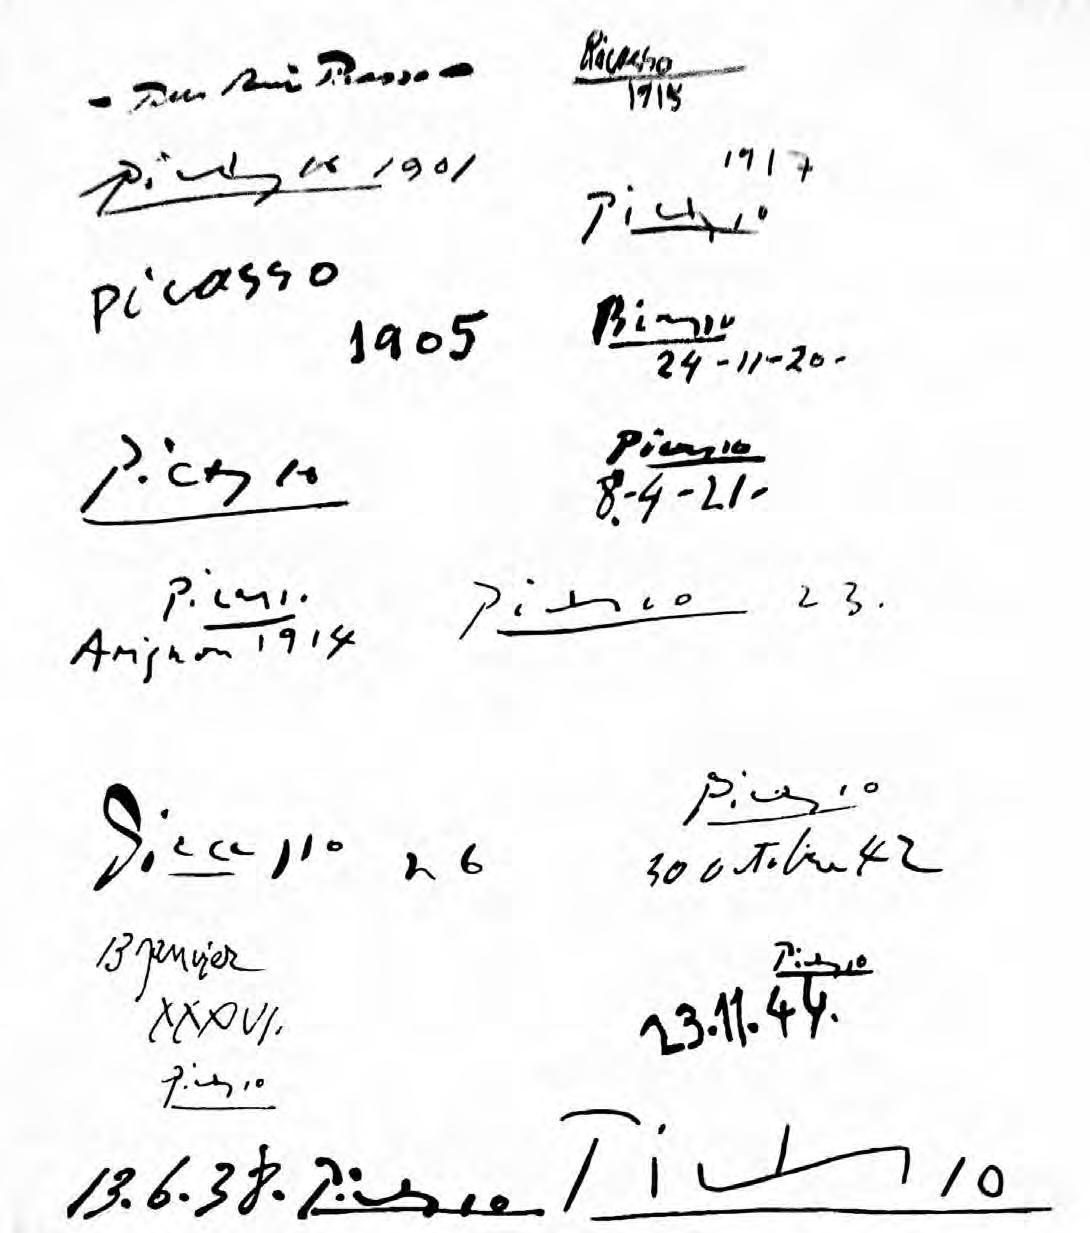 Picasso
1915
Picasso 1901
1917
Picasso
Picasso
1905
Picasso
24-11-20-
Picasso
Picasso
8-4-21-
Picasso
Avignon 1914
Picasso 23.
Picasso 26
Picasso
30 octobre 42
13 janvier
XXXVI.
Picasso
Picasso
23.11.44.
13.6.38. Picasso
Picasso